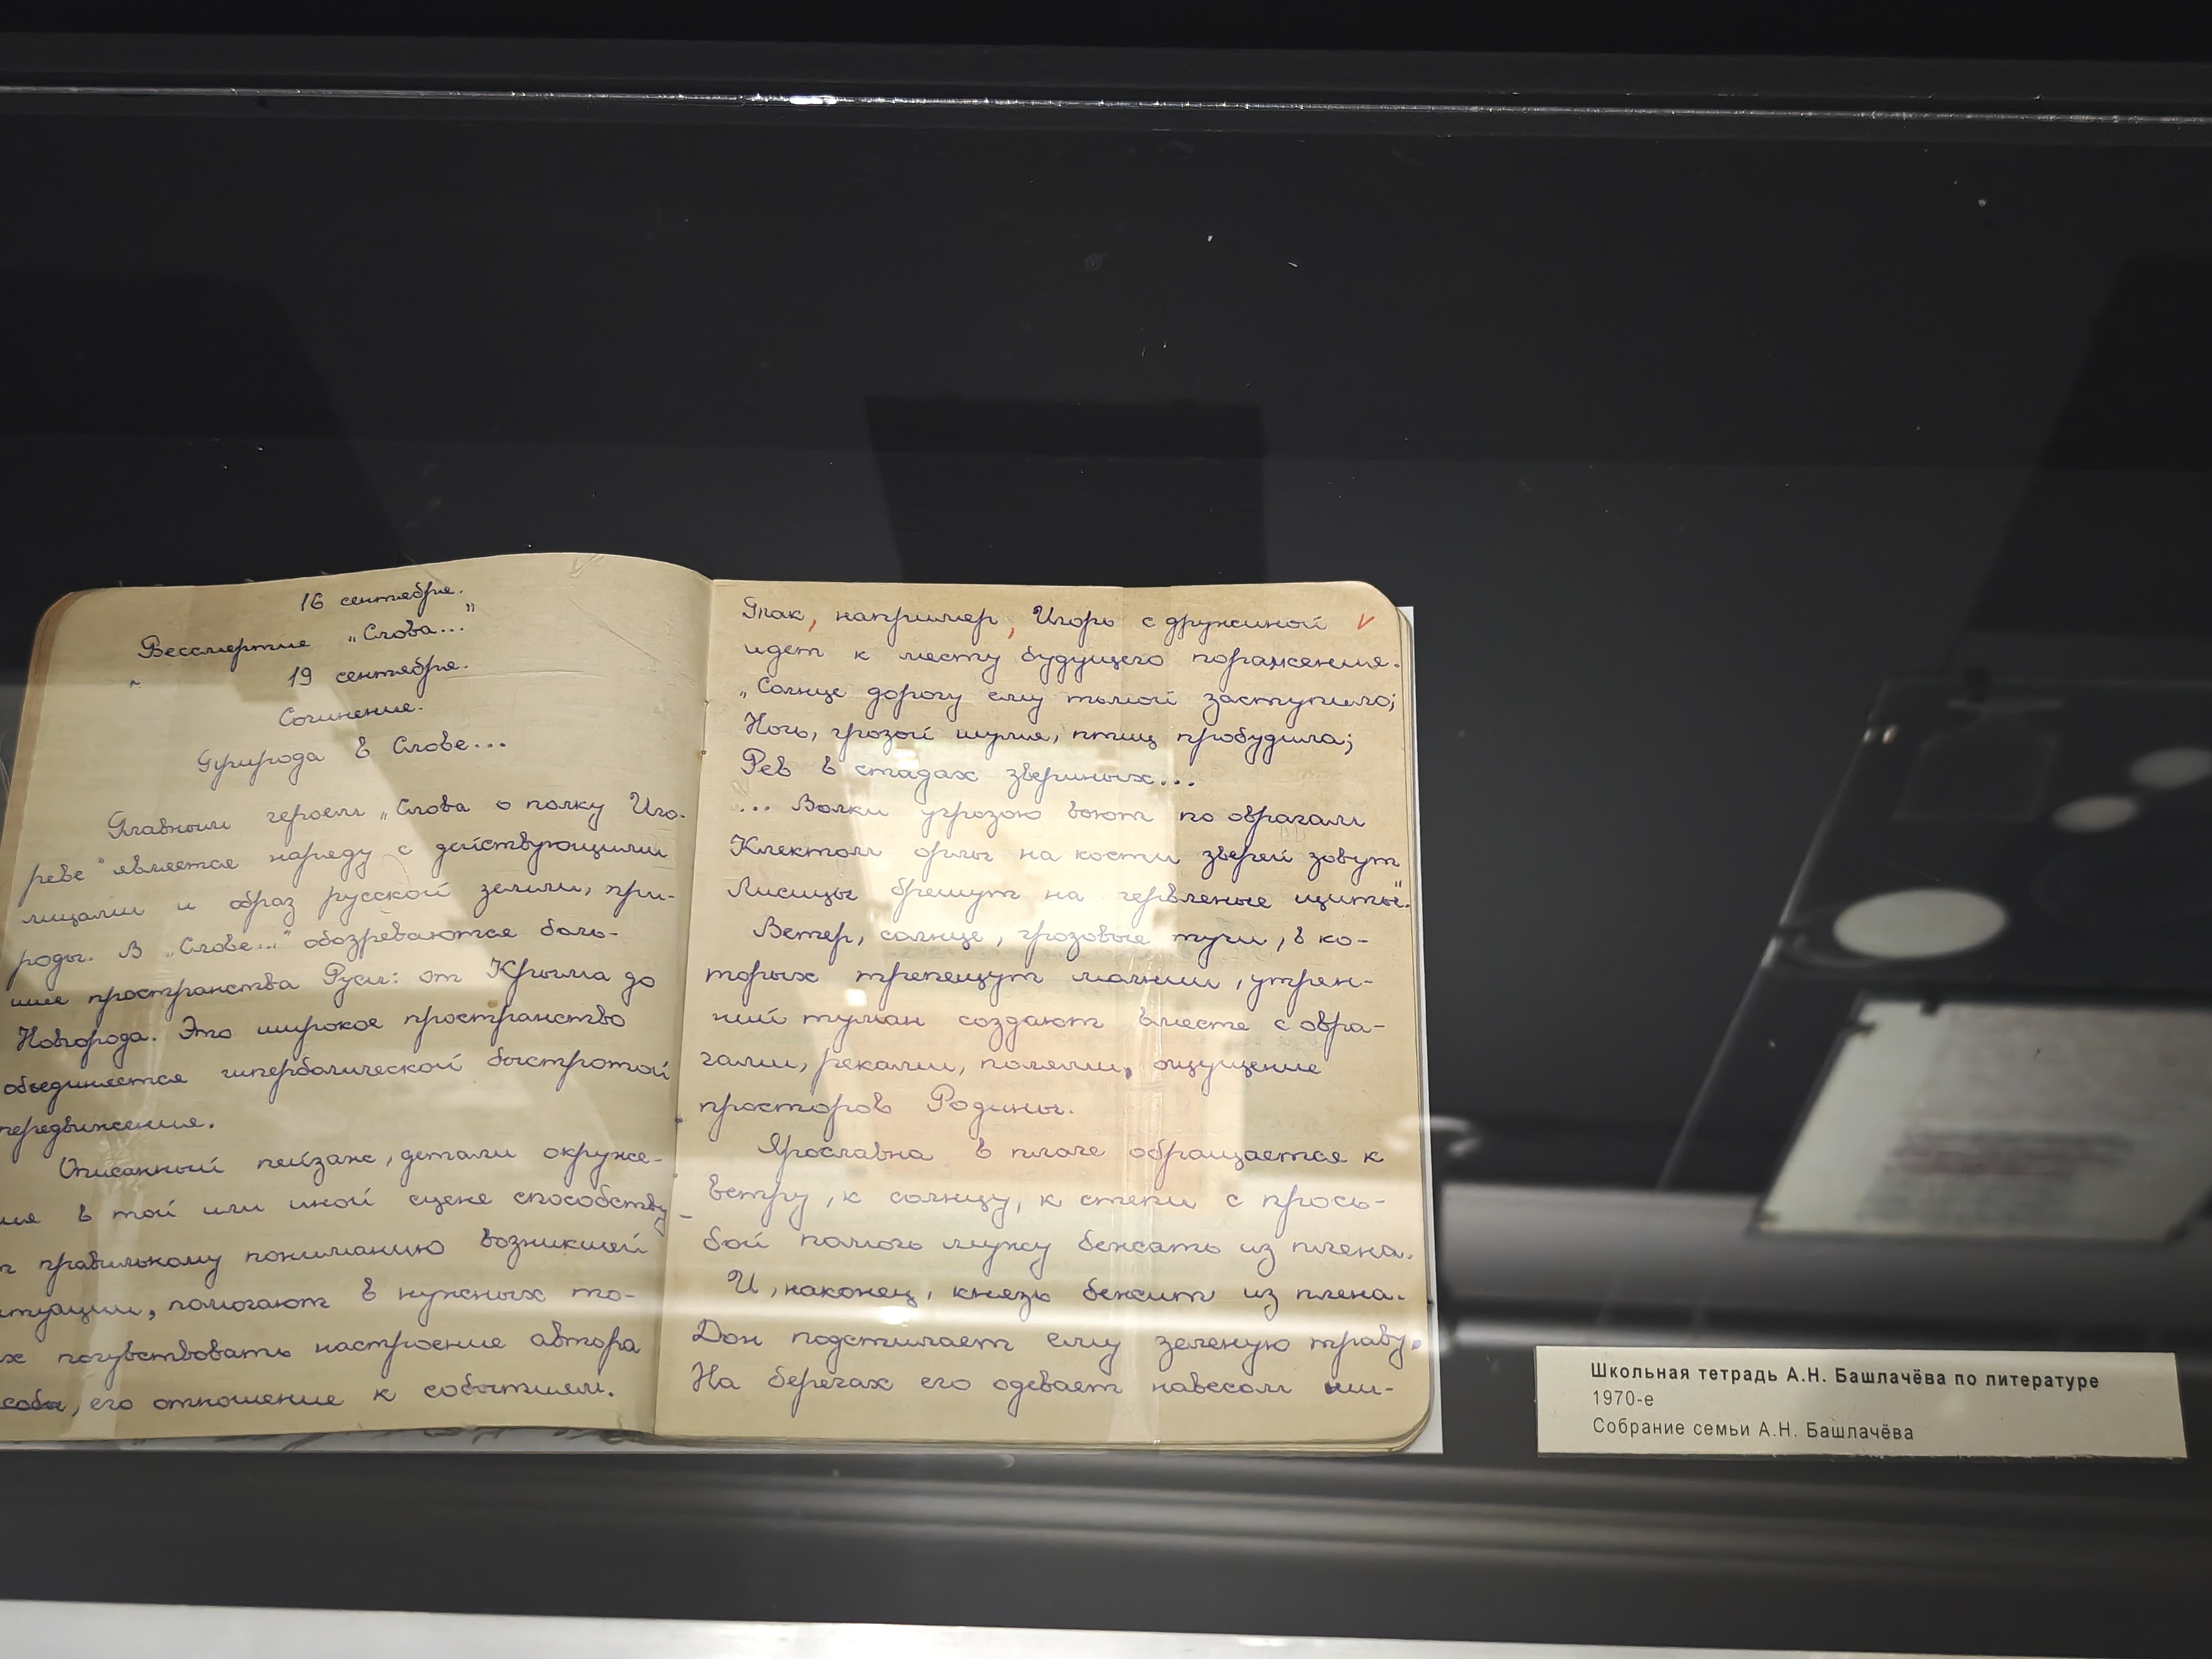 16 сентября.
Бессмертие „Слова..."
19 сентября.
Сочинение.
Природа в Слове...
Главным героем „Слова о полку Иго-
реве" является наряду с действующими
лицами и образ русской земли, при-
роды. В „Слове..." обозреваются боль-
шие пространства Руси: от Крыма до
Новгорода. Это широкое пространство
объединяется гиперболической быстротой
передвижения.
Описанный пейзаж, детали окруже-
ия в той или иной сцене способству-
т правильному пониманию возникшей
итуации, помогают в нужных то-
х почувствовать настроение автора
собы, его отношение к событиям.
Так, например, Игорь с дружиной
идет к месту будущего поражения.
„Солнце дорогу ему тьмой заступило;
Ночь, грозой шумя, птиц пробудила;
Рев в стадах звериных...
... Волки угрозою воют по оврагам
Клектом орлы на кости зверей зовут
Лисицы брешут на червленые щиты".
Ветер, солнце, грозовые тучи, в ко-
торых трепещут молнии, утрен-
ний туман создают вместе с овра-
гами, реками, полями, ощущение
просторов Родины.
Ярославна в плаче обращается к
ветру, к солнцу, к степи с прось-
бой помочь мужу бежать из плена.
И, наконец, князь бежит из плена.
Дон подстилает ему зеленую траву.
На берегах его одевает навесом ми-
Школьная тетрадь А.Н. Башлачёва по литературе
1970-е
Собрание семьи А.Н. Башлачёва